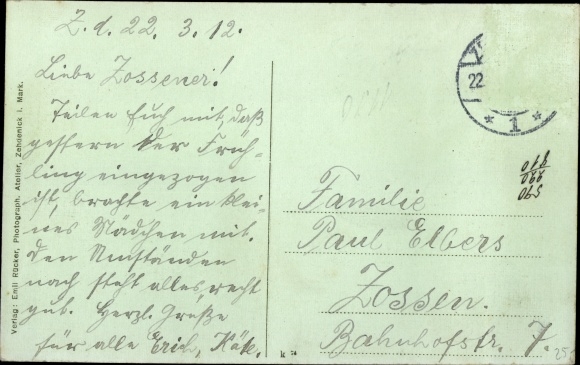 Z. d. 22. 3. 12.
Liebe Zossener!
Teilen Euch mit, daß
gestern der Früh-
ling eingezogen
ist, brachte ein klei-
nes Mädchen mit.
Den Umständen
nach steht alles recht
gut. Herzl. Grüße
für alle Erich, Käte.
Verlag: Emil Rücker, Photograph. Atelier, Zehdenick i. Mark.
22
* 1 *
Familie
Paul Elbers
Zossen.
Bahnhofstr. 7.